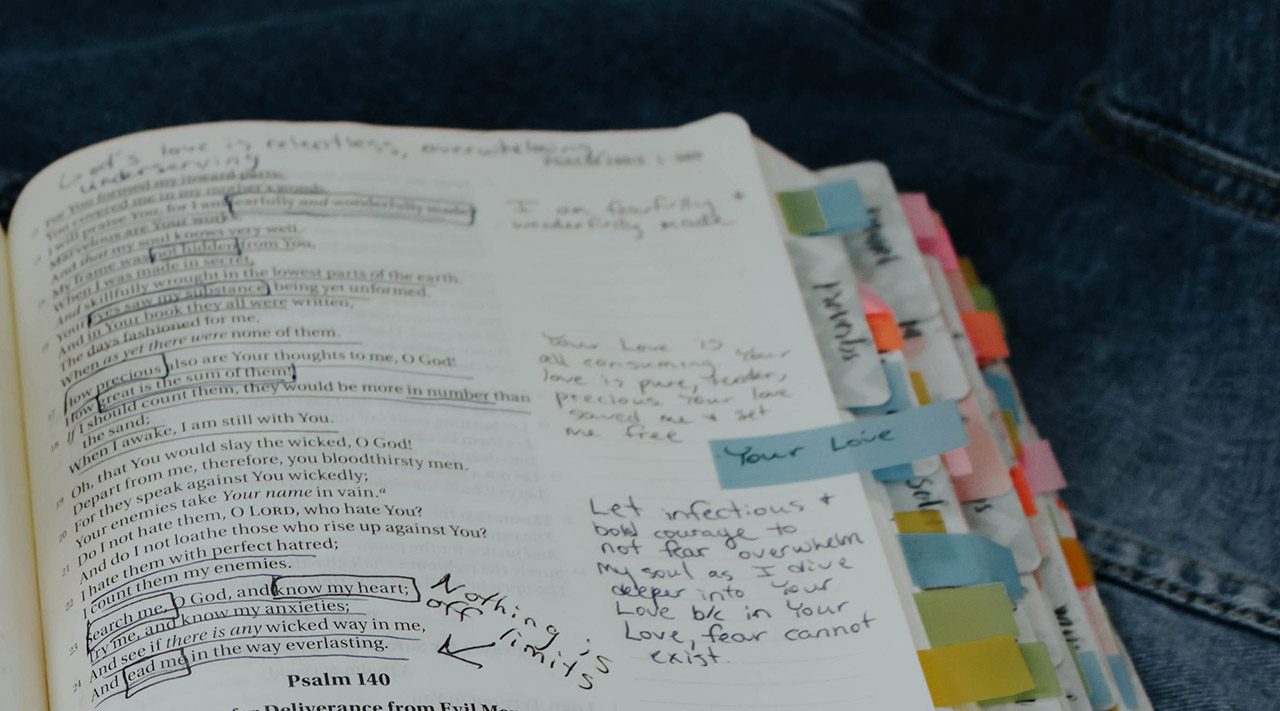 God's love is relentless, overwhelming,
underserving
For You formed my inward parts;
You covered me in my mother's womb.
I will praise You, for I am fearfully and wonderfully made;
Marvelous are Your works,
And that my soul knows very well.
My frame was not hidden from You,
When I was made in secret,
And skillfully wrought in the lowest parts of the earth.
Your eyes saw my substance, being yet unformed.
And in Your book they all were written,
The days fashioned for me,
When as yet there were none of them.
17 How precious also are Your thoughts to me, O God!
How great is the sum of them!
18 If I should count them, they would be more in number than
the sand;
When I awake, I am still with You.
19 Oh, that You would slay the wicked, O God!
Depart from me, therefore, you bloodthirsty men.
20 For they speak against You wickedly;
Your enemies take Your name in vain.a
21 Do I not hate them, O LORD, who hate You?
And do I not loathe those who rise up against You?
22 I hate them with perfect hatred;
I count them my enemies.
23 Search me, O God, and know my heart;
Try me, and know my anxieties;
24 And see if there is any wicked way in me,
And lead me in the way everlasting.
Psalm 140
for Deliverance from Evil
Nothing is
off limits
I am fearfully +
wonderfully made
Your Love is
all consuming Your
love is pure, tender,
precious. Your love
saved me + set
me free
Your Love
Let infectious +
bold courage to
not fear overwhelm
my soul as I dive
deeper into Your
Love b/c in Your
Love, fear cannot
exist.
Proverbs